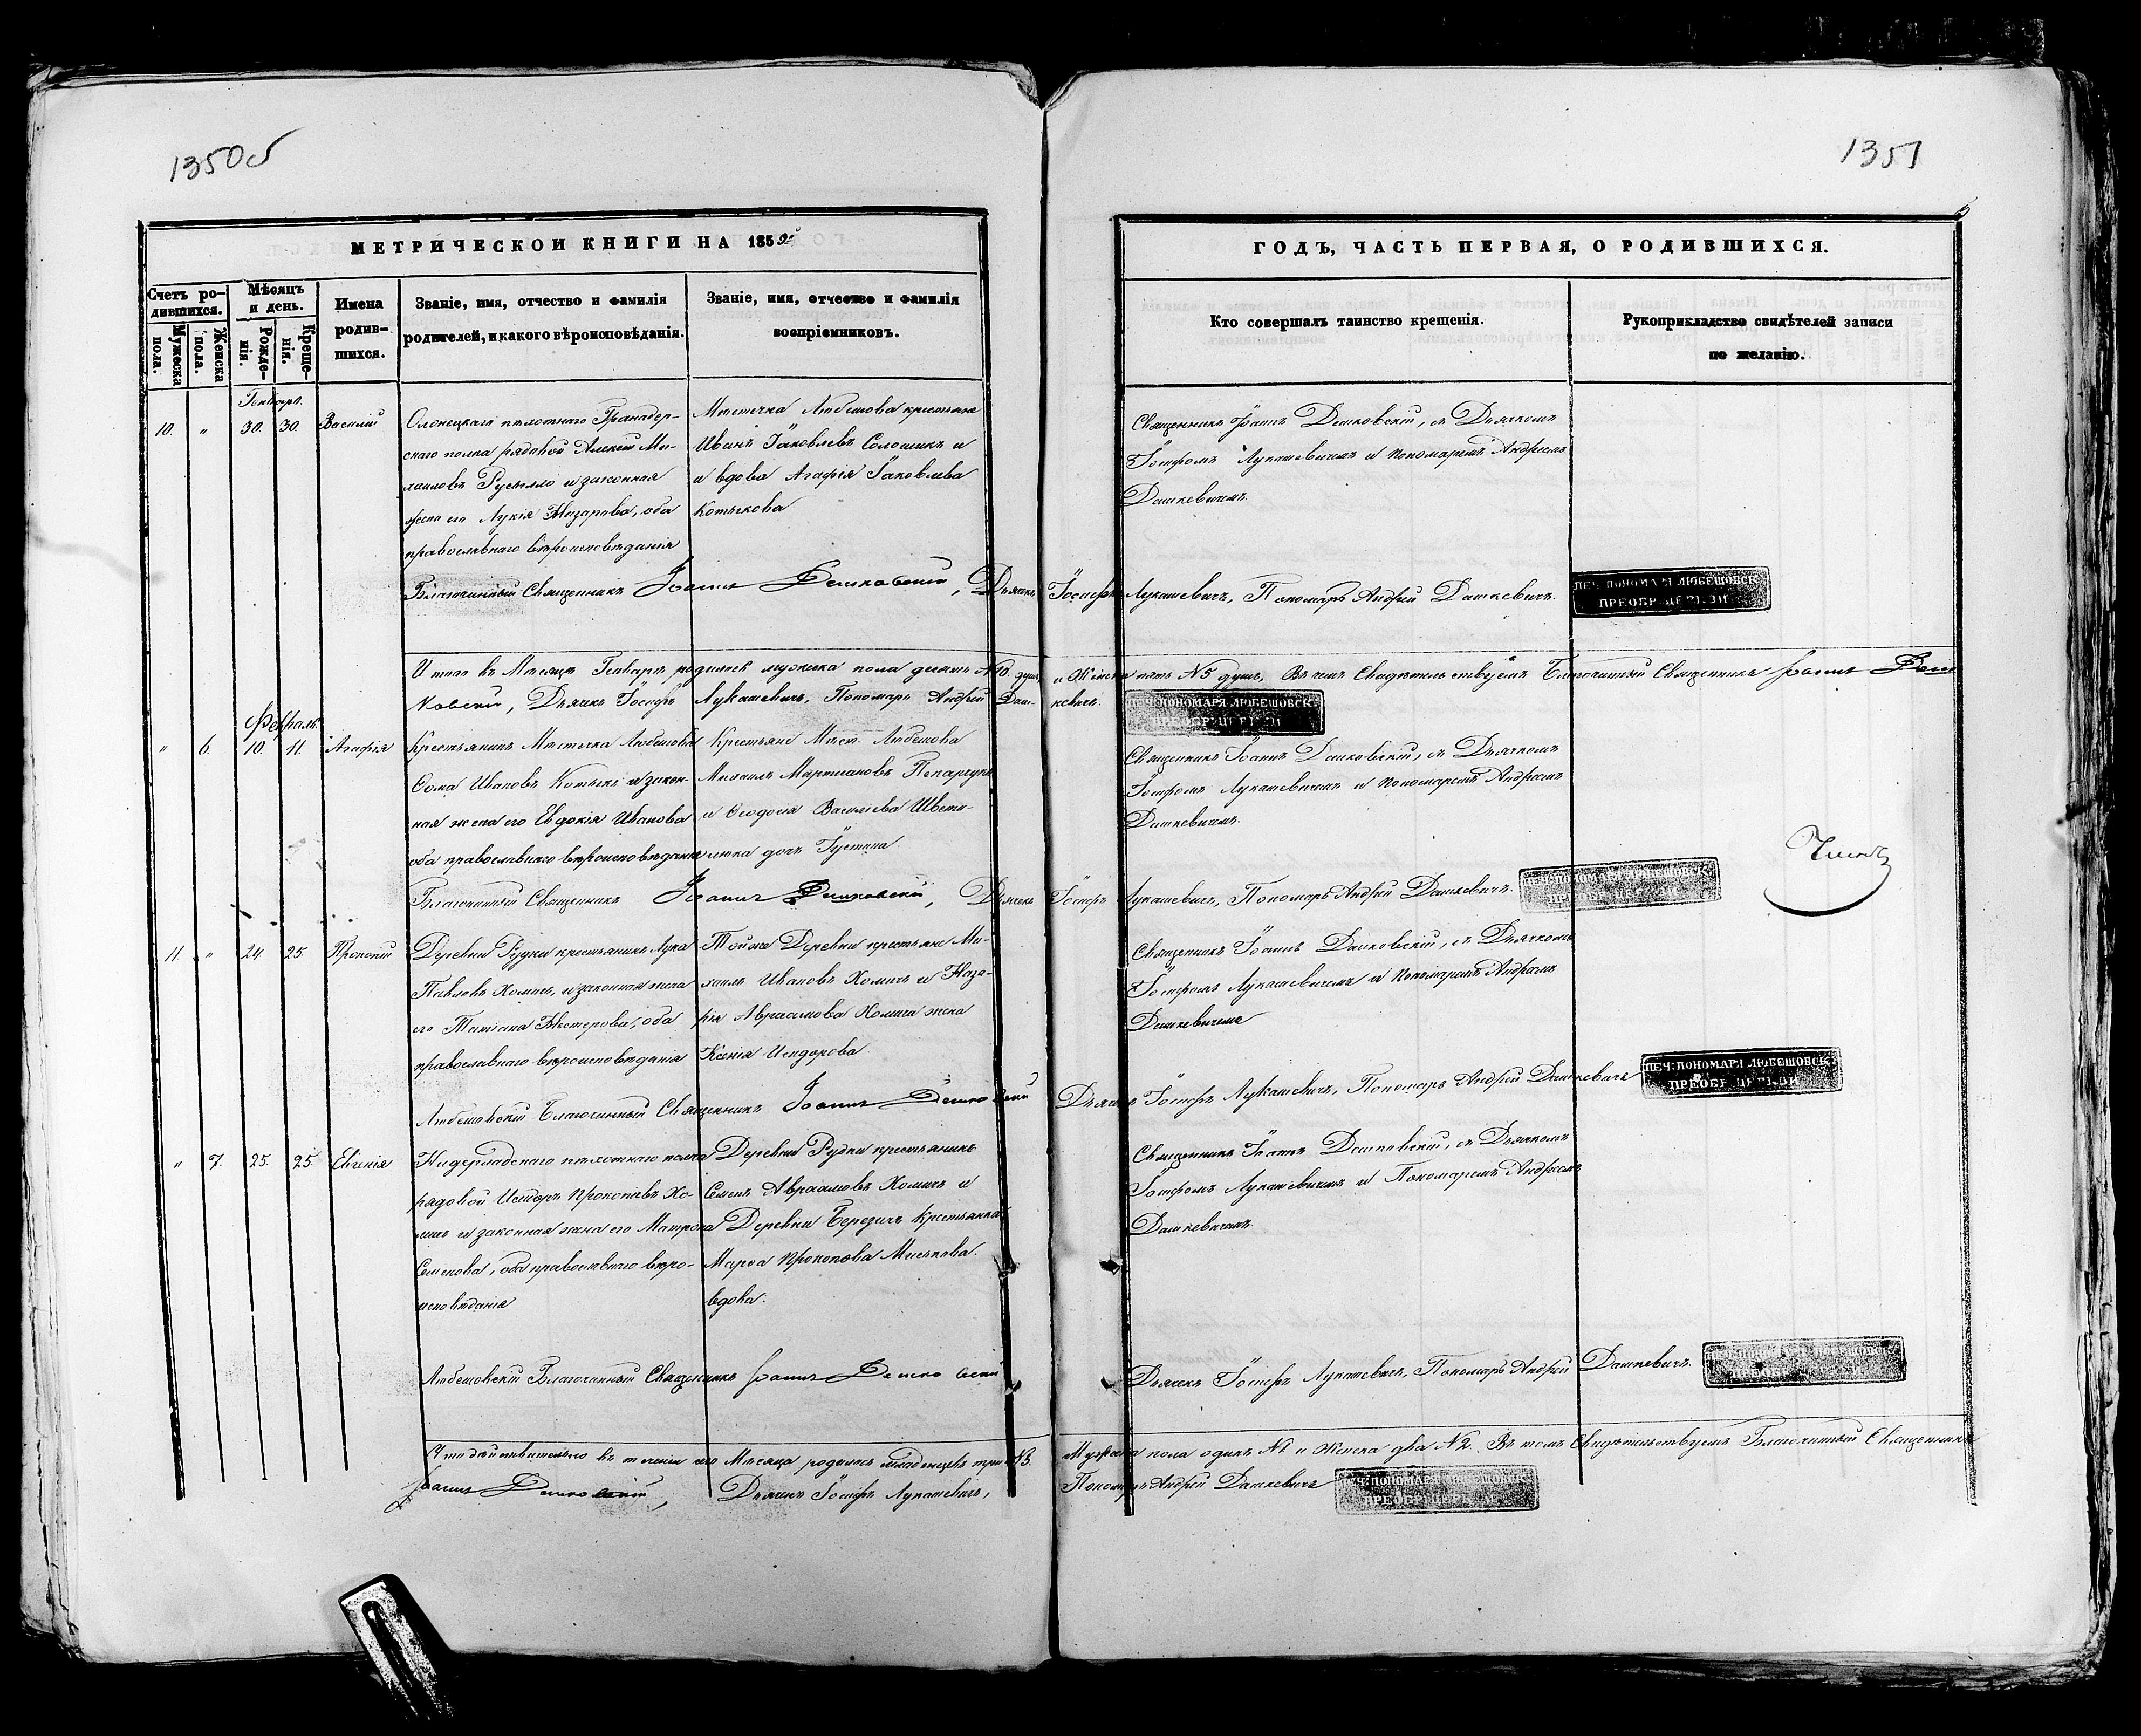 1350об
1351
МЕТРИЧЕСКОЙ КНИГИ НА 1859
ГОДЪ, ЧАСТЬ ПЕРВАЯ, О РОДИВШИХСЯ.
Счетъ ро-
дившихся.
Мужеска
пола.
Женска
пола.
Мѣсяцъ
и день.
Рожде-
нія.
Креще-
нія.
Имена
родив-
шихся.
Званіе, имя, отчество и фамилія
родителей, и какого вѣроисповѣданія.
Званіе, имя, отчество и фамилія
воспріемниковъ.
Кто совершалъ таинство крещенія.
Рукоприкладство свидѣтелей записи
по желанію.
Генварь.
10. " 30. 30. Василій
Олонецкаго пѣхотнаго Гранадер-
скаго полка рядовой Алексѣй Ми-
хаиловъ Русилло и законная
жена его Лукія Назарова, оба
православнаго вѣроисповѣданія
Мѣстечка Любешова крестьяне
Иванъ Іаковлевъ Солошикъ и
и вдова Агафія Іаковлева
Котыкова
Священникъ Іоаннъ Дашковскій, съ Дьячкомъ
Іосифомъ Лукашевичемъ и Пономаремъ Андреемъ
Дашкевичемъ.
Благочинный Священникъ Іоаннъ Дашковскій, Дьячекъ Іосифъ Лукашевичъ, Пономарь Андрей Дашкевичъ.
ПЕЧ: ПОНОМАРЯ ЛЮБЕШОВСК:
ПРЕОБР: ЦЕРК:
Итого въ Мѣсяцѣ Генварѣ родилось мужеска пола десять №10. душъ, и Женска пять №5 душъ, Въ чемъ Свидѣтельствуемъ Благочинный Священникъ Іоаннъ Даш
ковскій, Дьячекъ Іосифъ Лукашевичъ, Пономарь Андрей Даш- кевичъ.
ПЕЧ: ПОНОМАРЯ ЛЮБЕШОВСК:
ПРЕОБР: ЦЕРК:
Февраль.
" 6. 10. 11. Агафія
Крестьянинъ Мѣстечка Любешова
Ѳома Ивановъ Котыкъ и закон-
ная жена его Евдокія Иванова
оба православнаго вѣроисповѣданія
Крестьяне Мѣст. Любешова
Михаилъ Мартиановъ
и Ѳеодосія Василіева
люка дочь Іустина.
Священникъ Іоаннъ Дашковскій, съ Дьячкомъ
Іосифомъ Лукашевичемъ и Пономаремъ Андреемъ
Дашкевичемъ.
Благочинный Священникъ Іоаннъ Дашковскій, Дьячекъ Іосифъ Лукашевичъ, Пономарь Андрей Дашкевичъ.
ПЕЧ: ПОНОМАРЯ ЛЮБЕШОВСК:
11 " 24. 25 Прокопій
Деревни Рудки крестьянинъ Лука
Павловъ Хомичъ, и законная жена
его Татіана Нестерова, оба
православнаго вѣроисповѣданія
Тойже Деревни крестьяне Ми-
хаилъ Ивановъ Хомичъ и Наза-
рія Авраамова Хомича жена
Ксенія Исидорова
Священникъ Іоаннъ Дашковскій, съ Дьячкомъ
Іосифомъ Лукашевичемъ и Пономаремъ Андреемъ
Дашкевичемъ
Любешовскій Благочинный Священникъ Іоаннъ Дашковскій Дьячекъ Іосифъ Лукашевичъ, Пономарь Андрей Дашкевичъ
ПЕЧ: ПОНОМАРЯ ЛЮБЕШОВСК:
ПРЕОБР: ЦЕРКВИ
" 7. 25. 25. Евгенія
Нидерладскаго пѣхотнаго полка
рядовой Исидоръ Прокопіевъ Хо-
мичъ и законная жена его Матрона
Семенова, оба православнаго вѣро-
исповѣданія
Деревни Рудки крестьянинъ
Семенъ Авраамовъ Хомичъ и
Деревни Березичъ Крестьянка
Марѳа Прокопова
вдова.
Священникъ Іоаннъ Дашковскій, съ Дьячкомъ
Іосифомъ Лукашевичемъ и Пономаремъ Андреемъ
Дашкевичемъ.
Любешовскій Благочинный Священникъ Іоаннъ Дашковскій Дьячекъ Іосифъ Лукашевичъ, Пономарь Андрей Дашкевичъ.
Что дѣйствительно въ теченіи сего Мѣсяца родилось младенцевъ три №3. Мужеска пола одинъ №1 и Женска два №2. Въ томъ Свидѣтельствуемъ Благочинный Священникъ
Іоаннъ Дашковскій, Дьячекъ Іосифъ Лукашевичъ, Пономарь Андрей Дашкевичъ
ПЕЧ: ПОНОМАРЯ ЛЮБЕШОВСК: